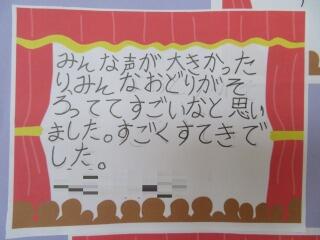 みんな声が大きかった
り、みんなおどりがそ
ろっててすごいなと思い
ました。すごくすてきで
した。